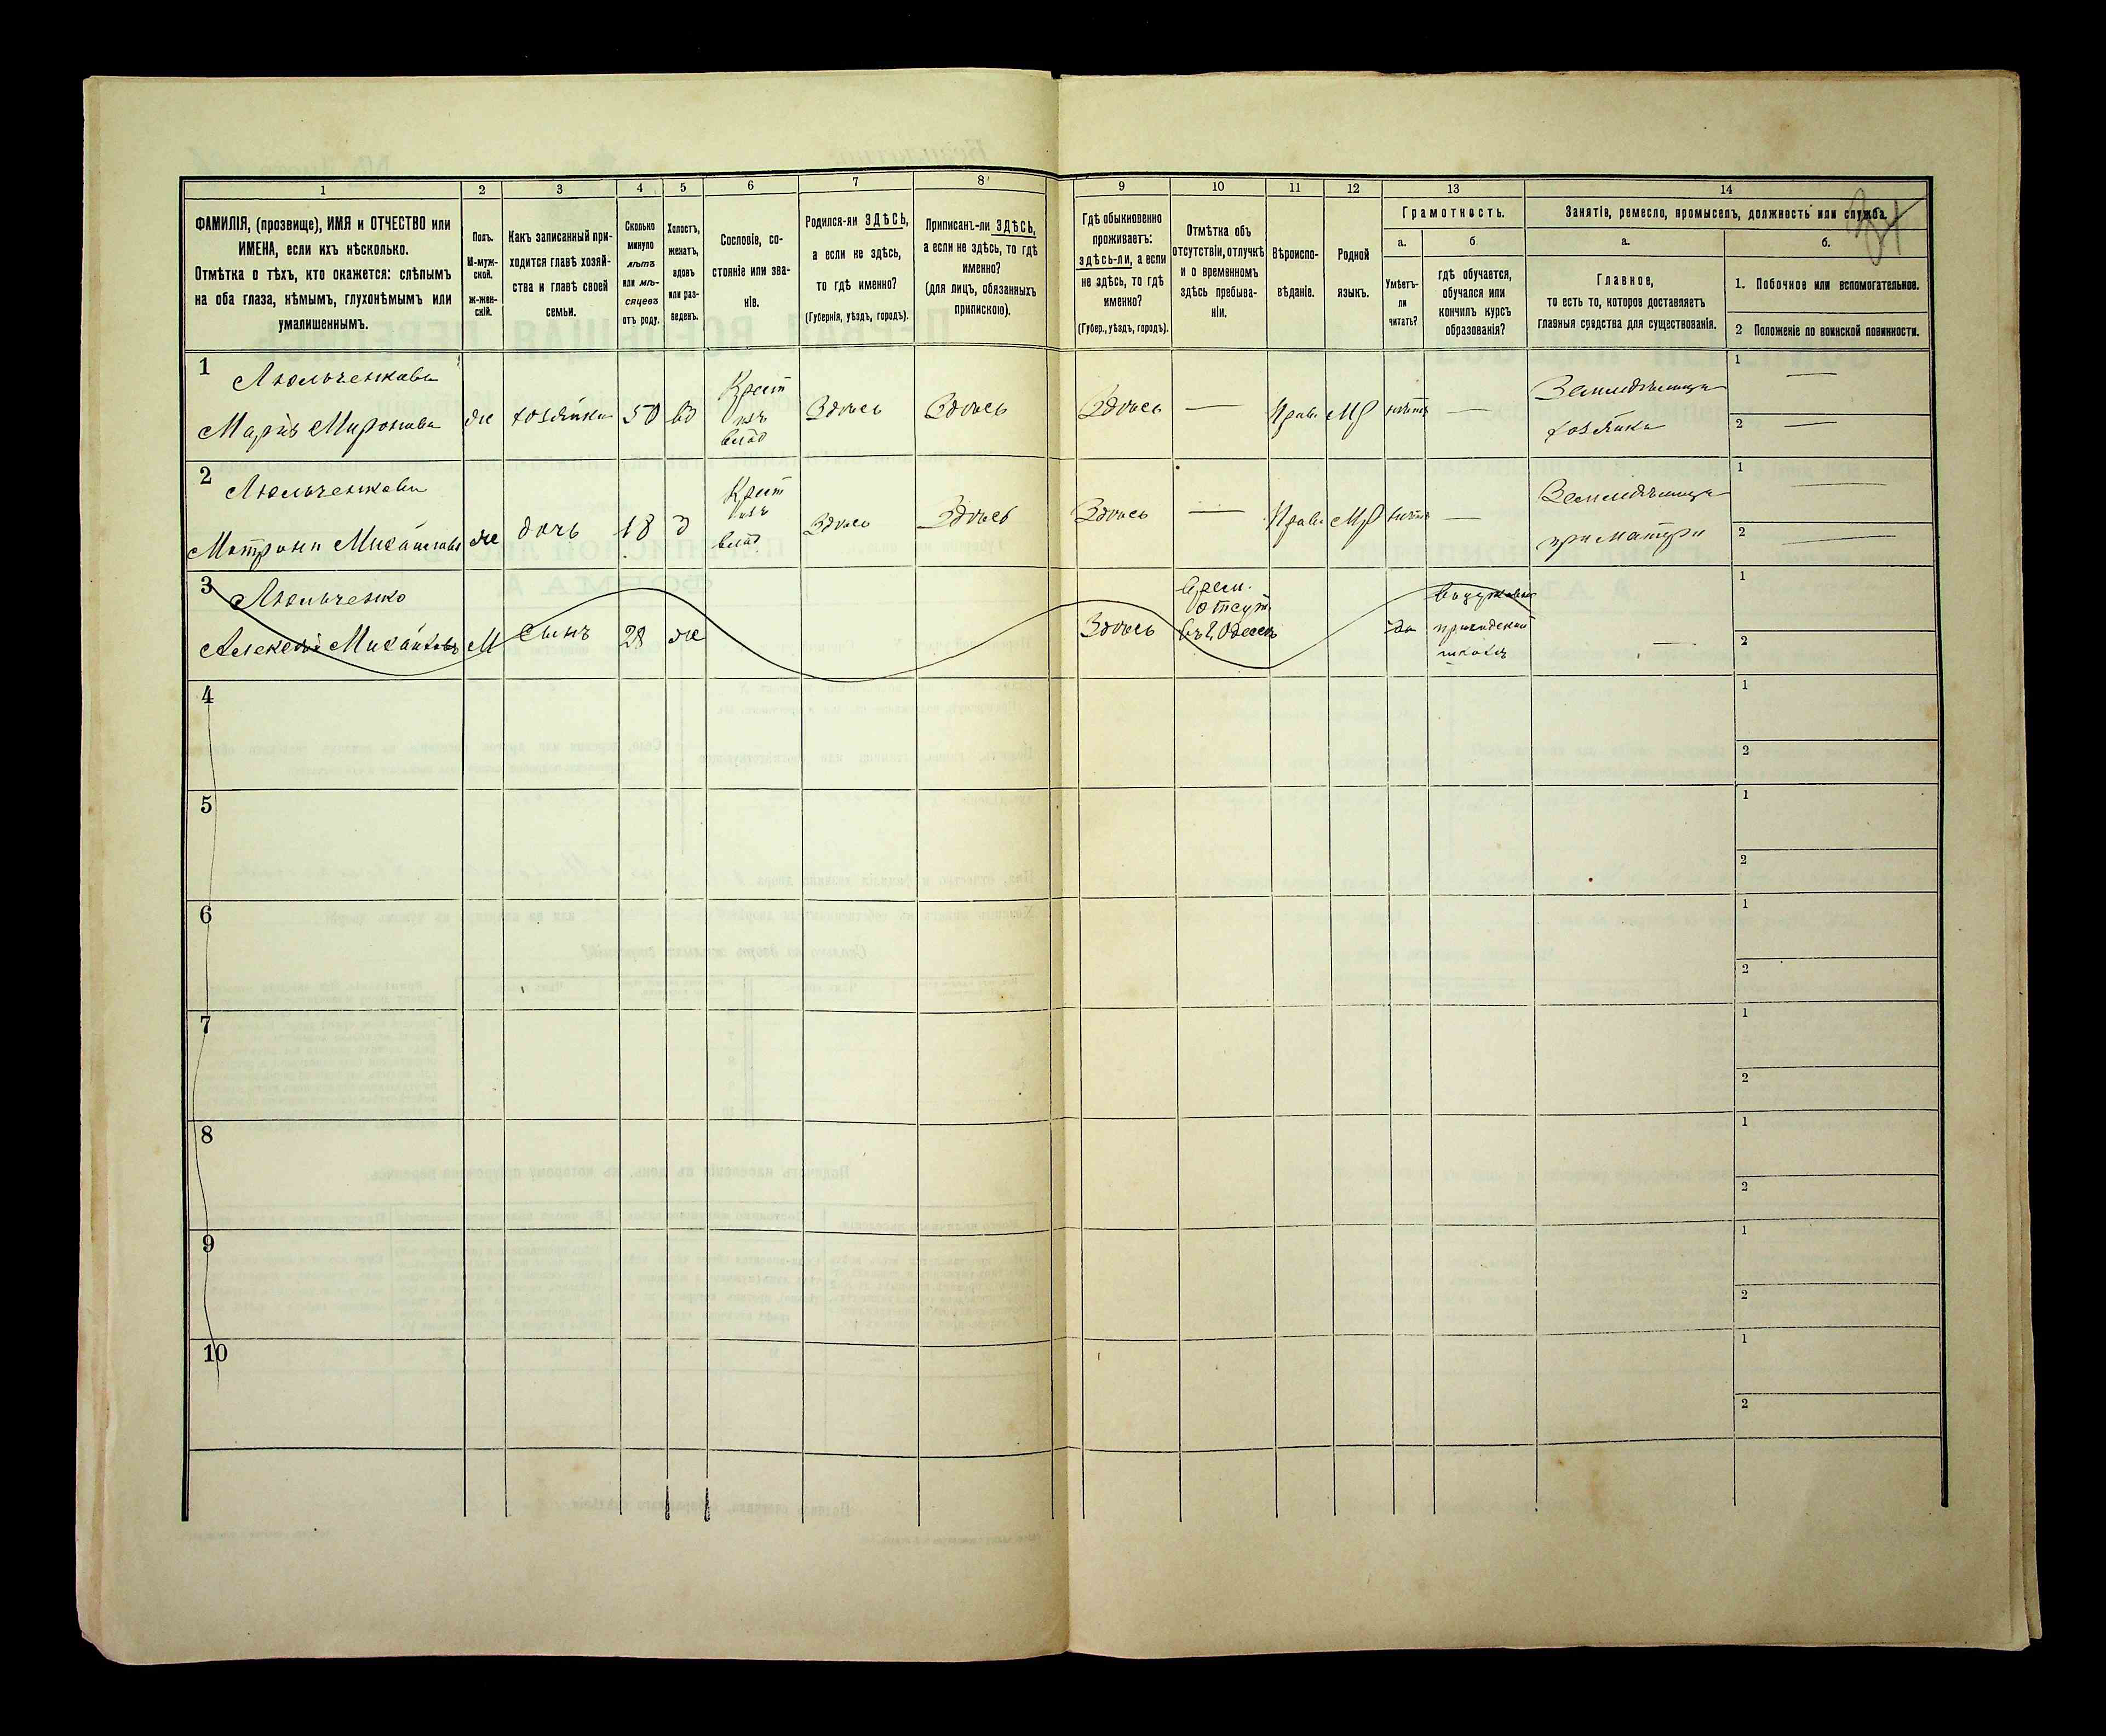 1 2 3 4 5 6 7 8 9 10 11 12 13 14
ФАМИЛІЯ, (прозвище), ИМЯ и ОТЧЕСТВО или
ИМЕНА, если ихъ нѣсколько.
Отмѣтка о тѣхъ, кто окажется: слѣпымъ
на оба глаза, нѣмымъ, глухонѣмымъ или
умалишеннымъ.
Полъ.
М-муж-
ской.
ж-жен-
скій.
Какъ записанный при-
ходится главѣ хозяй-
ства и главѣ своей
семьи.
Сколько
минуло
лѣтъ
или мѣ-
сяцевъ
отъ роду.
Холостъ,
женатъ,
вдовъ
или раз-
веденъ.
Сословіе, со-
стояніе или зва-
ніе.
Родился-ли ЗДѢСЬ,
а если не здѣсь,
то гдѣ именно?
(Губернія, уѣздъ, городъ).
Приписанъ-ли ЗДѢСЬ,
а если не здѣсь, то гдѣ
именно?
(для лицъ, обязанныхъ
припискою).
Гдѣ обыкновенно
проживаетъ:
здѣсь-ли, а если
не здѣсь, то гдѣ
именно?
(Губер., уѣздъ, городъ).
Отмѣтка объ
отсутствіи, отлучкѣ
и о временномъ
здѣсь пребыва-
ніи.
Вѣроиспо-
вѣданіе.
Родной
языкъ.
Грамотность.
а.
Умѣетъ-
ли
читать?
б
гдѣ обучается,
обучался или
кончилъ курсъ
образованія?
Занятіе, ремесло, промыселъ, должность или служба.
а.
Главное,
то есть то, которое доставляетъ
главныя средства для существованія.
б.
1. Побочное или вспомогательное.
2 Положеніе по воинской повинности.
1
Люльченкова
Марія Миронова
ж
хозяйка
50
вд
Крест
изъ
влад
Здѣсь
Здѣсь
Здѣсь
—
Прав
МР
—
Земледѣлица
хозяйка
1 —
2 —
2
Люльченкова
Матрона Михайлова
ж
дочь
18
д
Крест
изъ
влад
Здѣсь
Здѣсь
Здѣсь
—
Прав
МР
—
Земледѣлица
при матери
1 —
2 —
3
Люльченко
Алексей Михайловъ
М
сынъ
28
ж
Здѣсь
Врем.
отсут
въ г. Одессѣ
да
приходской
школѣ
—
1
2
4
1
2
5
1
2
6
1
2
7
1
2
8
1
2
9
1
2
10
1
2